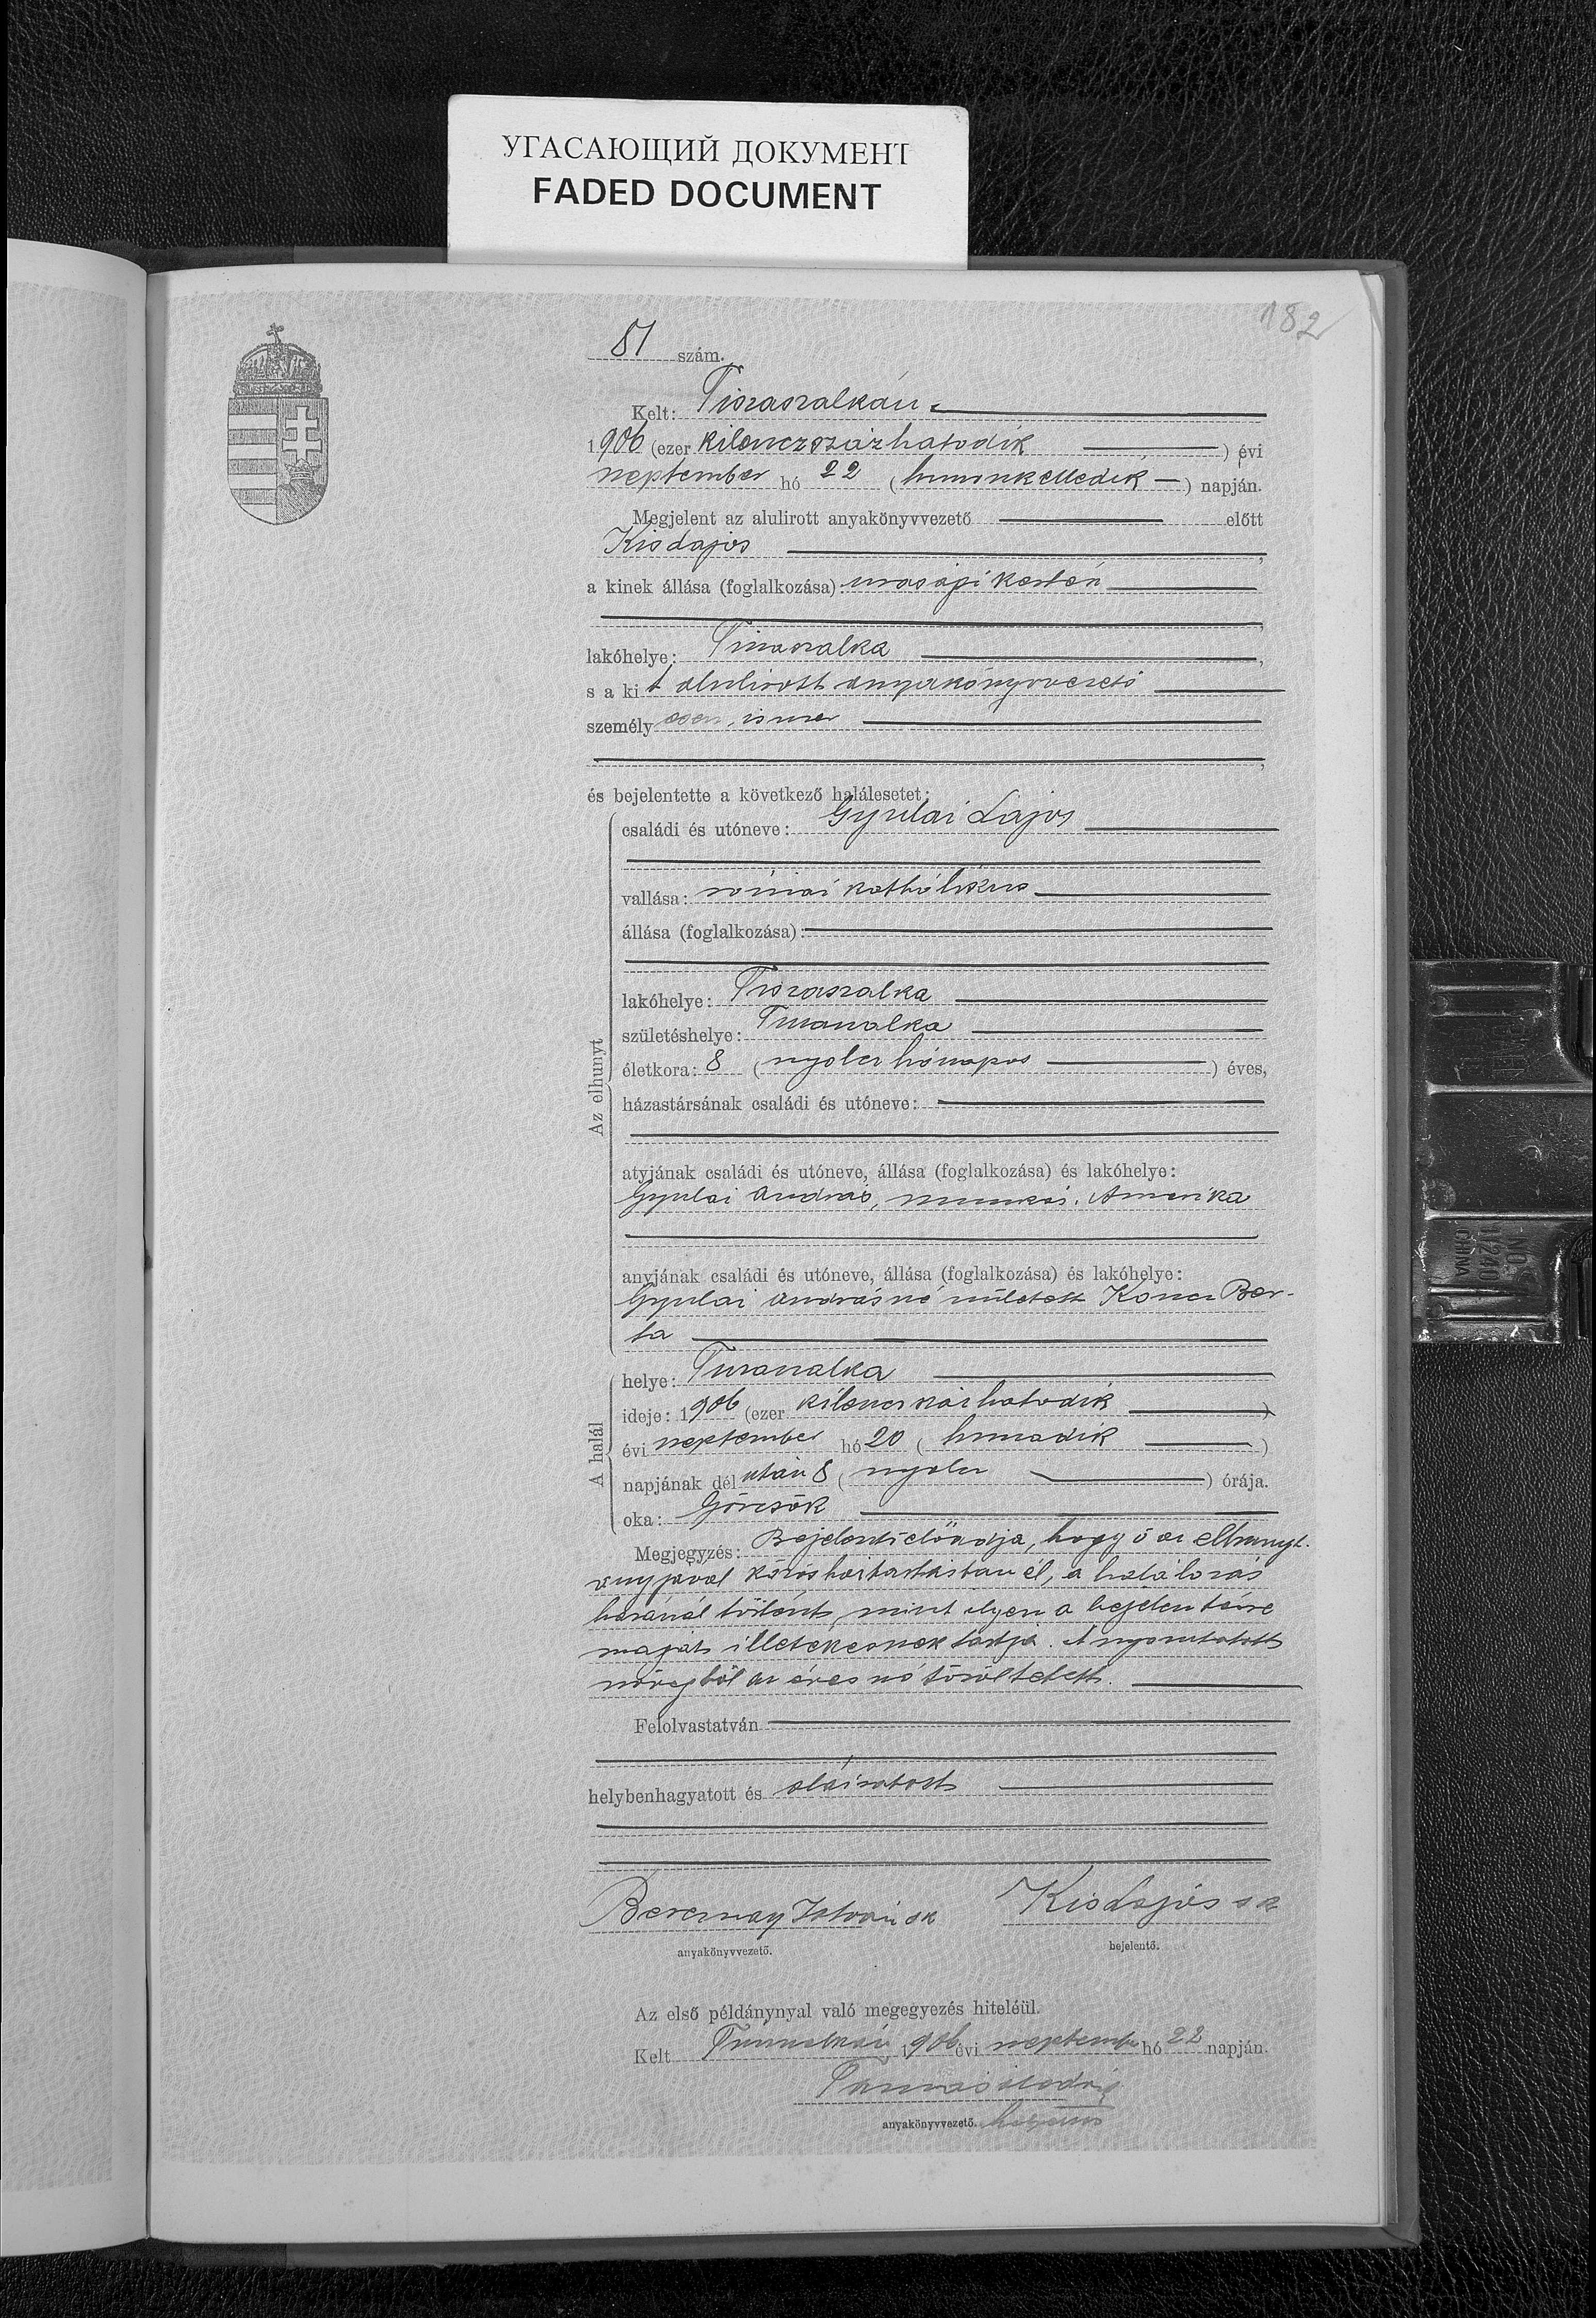 УГАСАЮЩИЙ ДОКУМЕНТ
FADED DOCUMENT
182
51 szám.
Kelt: Tiszaszalkán
1906 (ezer kilenczszázhatodik) évi
szeptember hó 22 (huszonkettedik) napján.
Megjelent az alulirott anyakönyvvezető előtt
Kis Lajos,
a kinek állása (foglalkozása): urasági kertész,
lakóhelye: Tiszaszalka,
s a kit alulirott anyakönyvvezető
személyesen ismer,
és bejelentette a következő halálesetet:
Az elhunyt
családi és utóneve: Gyulai Lajos
vallása: római katholikus
állása (foglalkozása):
lakóhelye: Tiszaszalka
születéshelye: Tiszaszalka
életkora: 8 (nyolcz hónapos) éves,
házastársának családi és utóneve:
atyjának családi és utóneve, állása (foglalkozása) és lakóhelye:
Gyulai András, munkás, Amerika
anyjának családi és utóneve, állása (foglalkozása) és lakóhelye:
Gyulai Andrásné született Koncz Ber-
ta
A halál
helye: Tiszaszalka
ideje: 1906 (ezer kilenczszázhatodik)
évi szeptember hó 20 (huszadik)
napjának délután 8 (nyolcz) órája.
oka: Görcsök
Megjegyzés: Bejelentő előadja, hogy ő az elhunyt
anyjával közös háztartásban él, a halálozás
házánál történt, mint ilyen a bejelentésre
magát illetékesnek tartja. A nyomtatott
szövegből az éves szó töröltetett.
Felolvastatván
helybenhagyatott és aláiratott
István sk Kis Lajos sk
anyakönyvvezető. bejelentő.
Az első példánynyal való megegyezés hiteléül.
Kelt Tiszaszalkán 1906 évi szeptember hó 22 napján.
anyakönyvvezető. helyettes
NO.
11240
CHINA